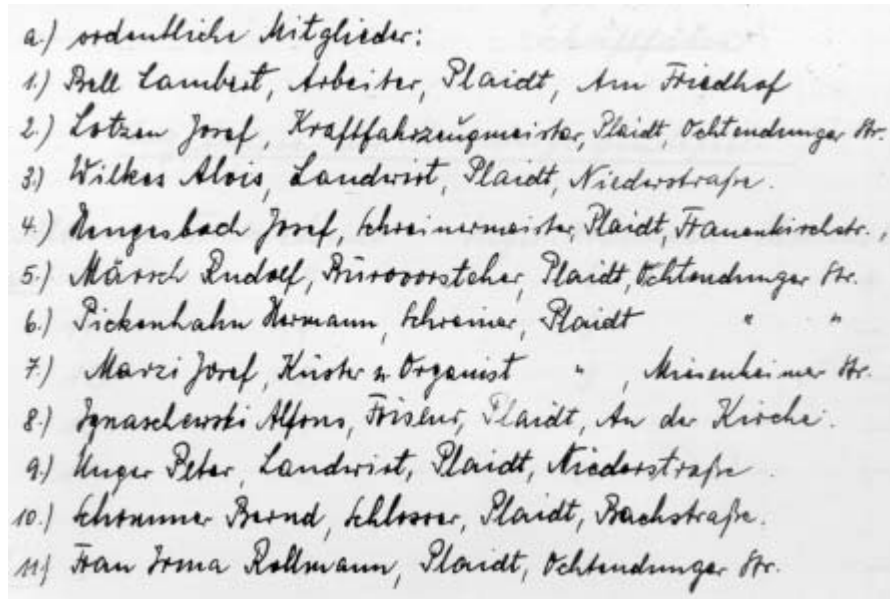 a.) ordentliche Mitglieder:
1.) Bell Lambert, Arbeiter, Plaidt, Am Friedhof
2.) Lotzen Josef, Kraftfahrzeugmeister, Plaidt, Ochtendunger Str.
3.) Wilkes Alois, Landwirt, Plaidt, Niederstraße.
4.) Hengesbach Josef, Schreinermeister, Plaidt, Frauenkirchstr.,
5.) Märsch Rudolf, Bürovorsteher, Plaidt, Ochtendunger Str.
6.) Pickenhahn Hermann, Schreiner, Plaidt " "
7.) Marzi Josef, Küster u. Organist " , Miesenheimer Str.
8.) Ignaschewski Alfons, Friseur, Plaidt, An der Kirche.
9.) Unger Peter, Landwirt, Plaidt, Niederstraße
10.) Schommer Bernd, Schlosser, Plaidt, Bachstraße.
11.) Frau Irma Rollmann, Plaidt, Ochtendunger Str.